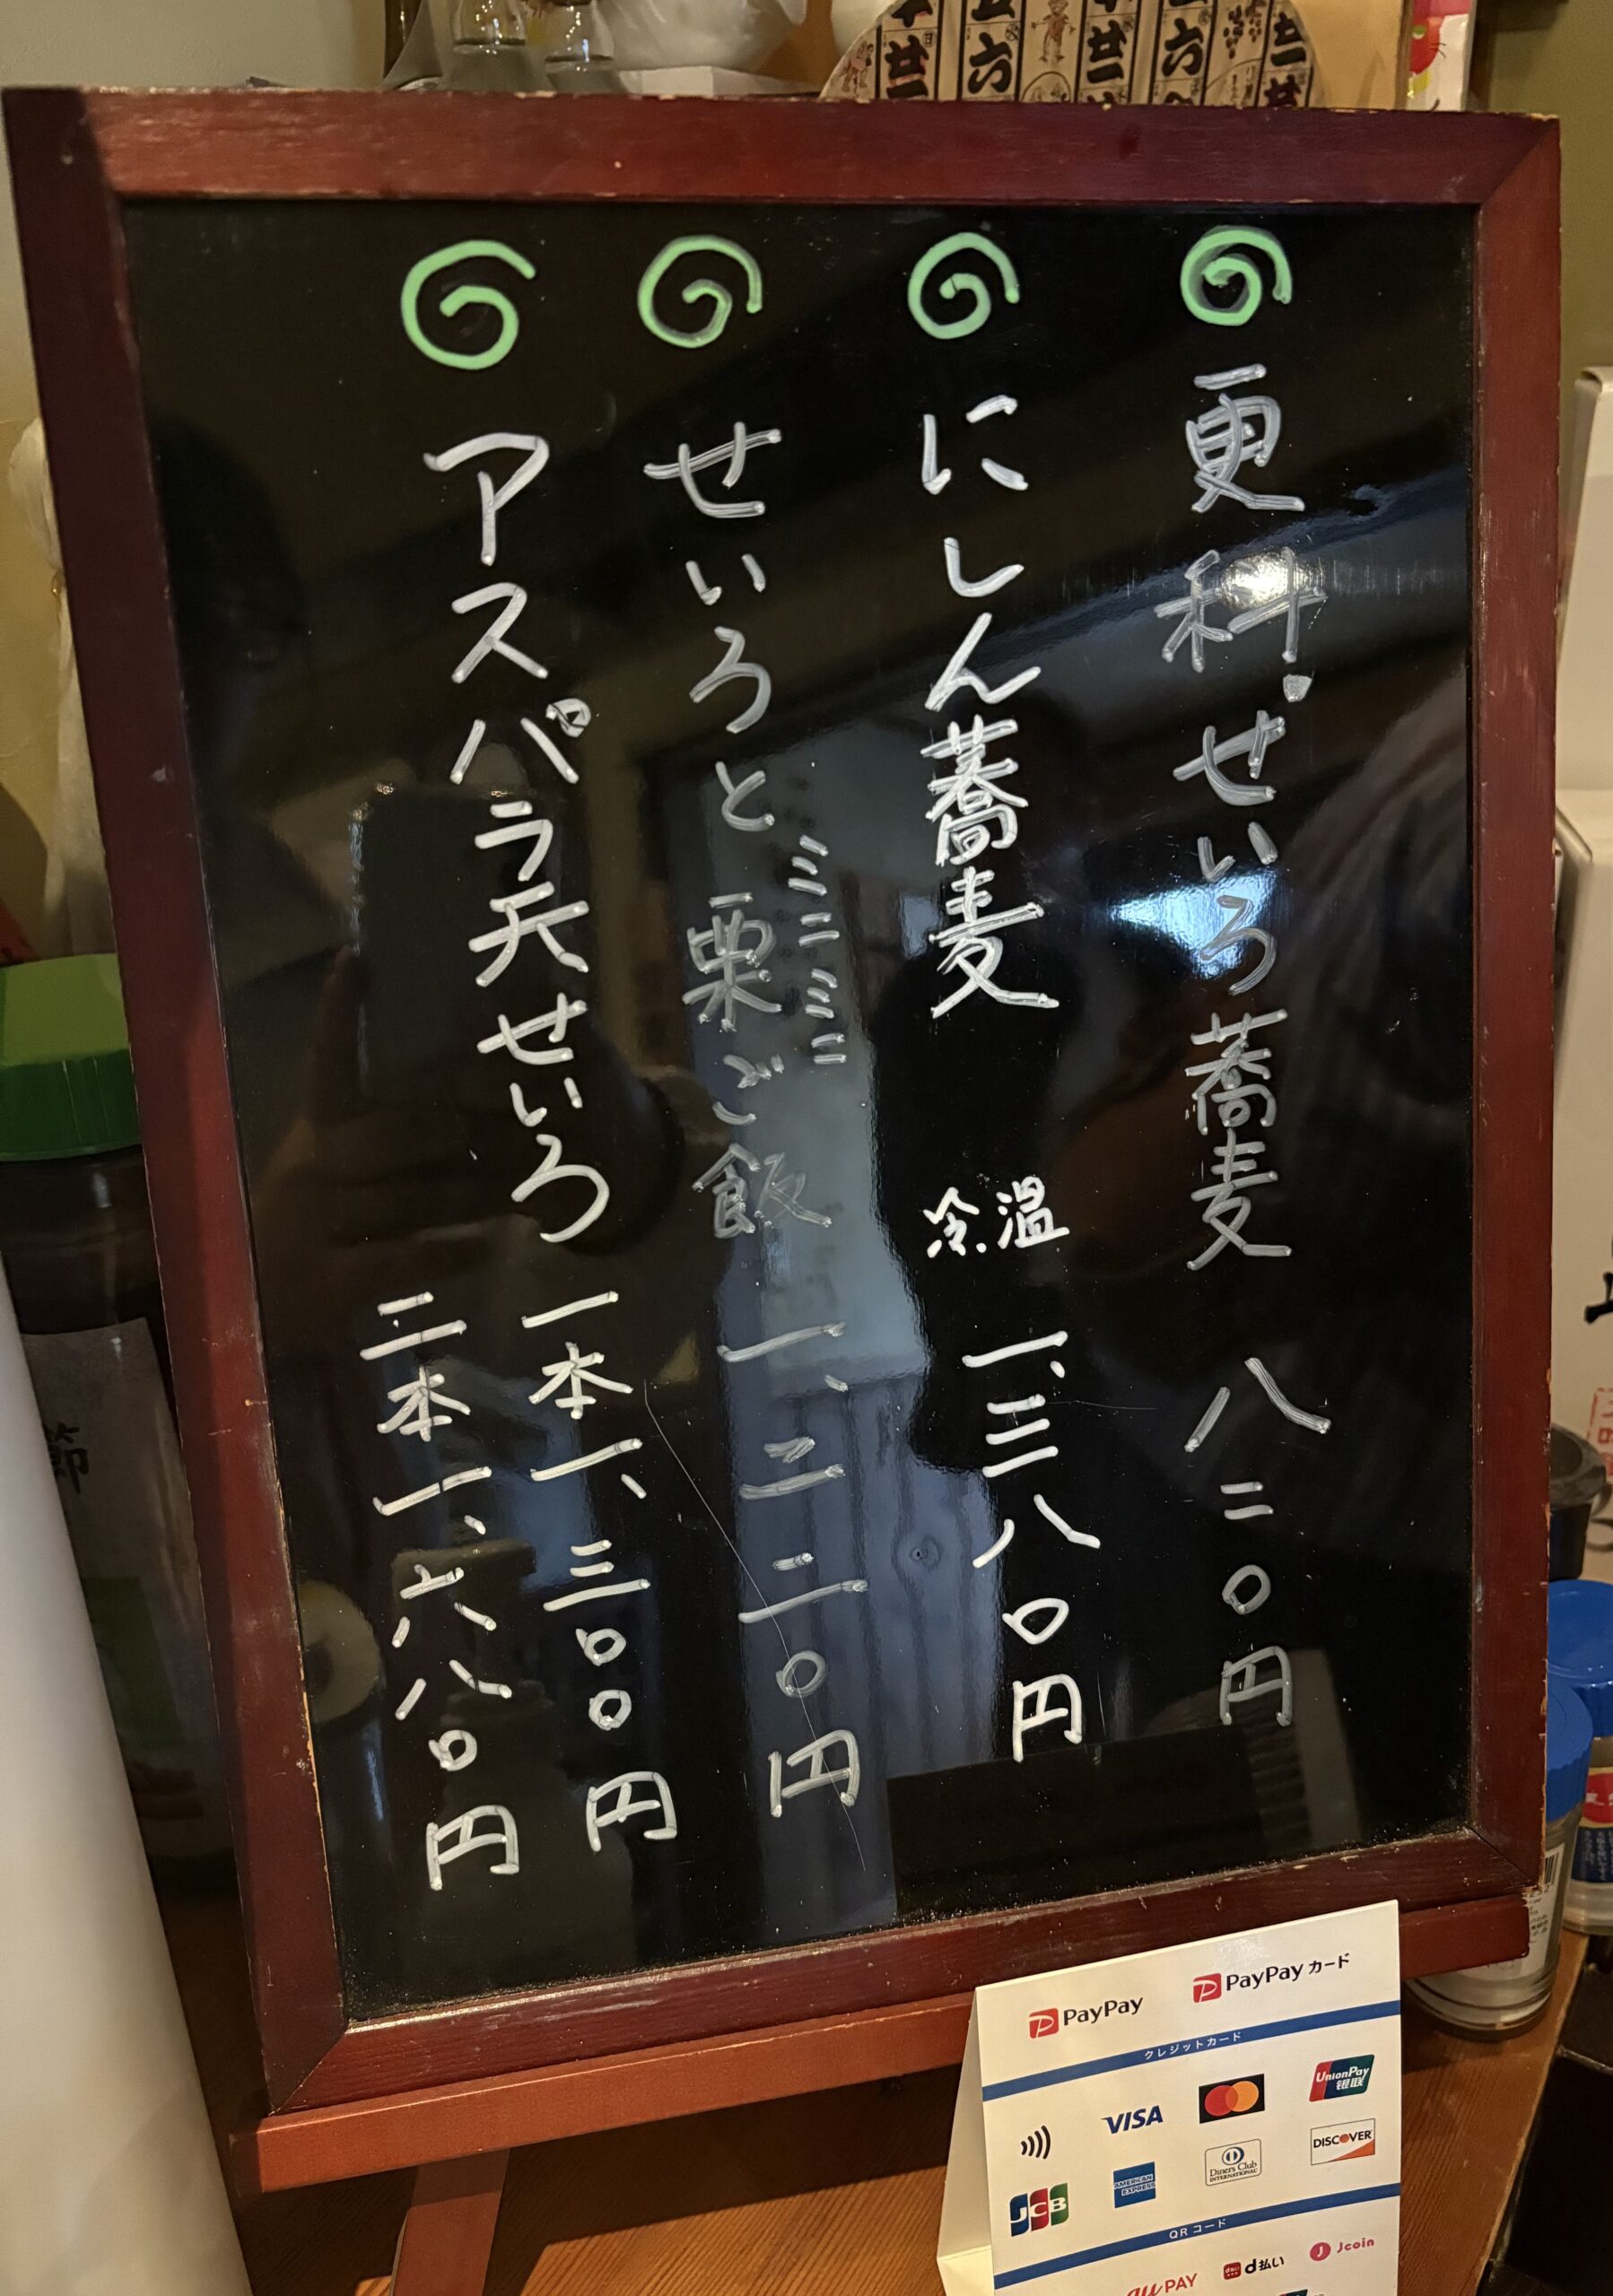 更科.せいろ蕎麦 八二〇円
にしん蕎麦 温冷. 一、三八〇円
せいろとミニミニ栗ご飯 一、二二〇円
アスパラ天せいろ 一本一、三〇〇円
二本一、六八〇円
PayPay PayPayカード
クレジットカード
VISA UnionPay 银联
JCB AMERICAN EXPRESS Diners Club INTERNATIONAL DISCOVER
QRコード
au PAY d払い Jcoin